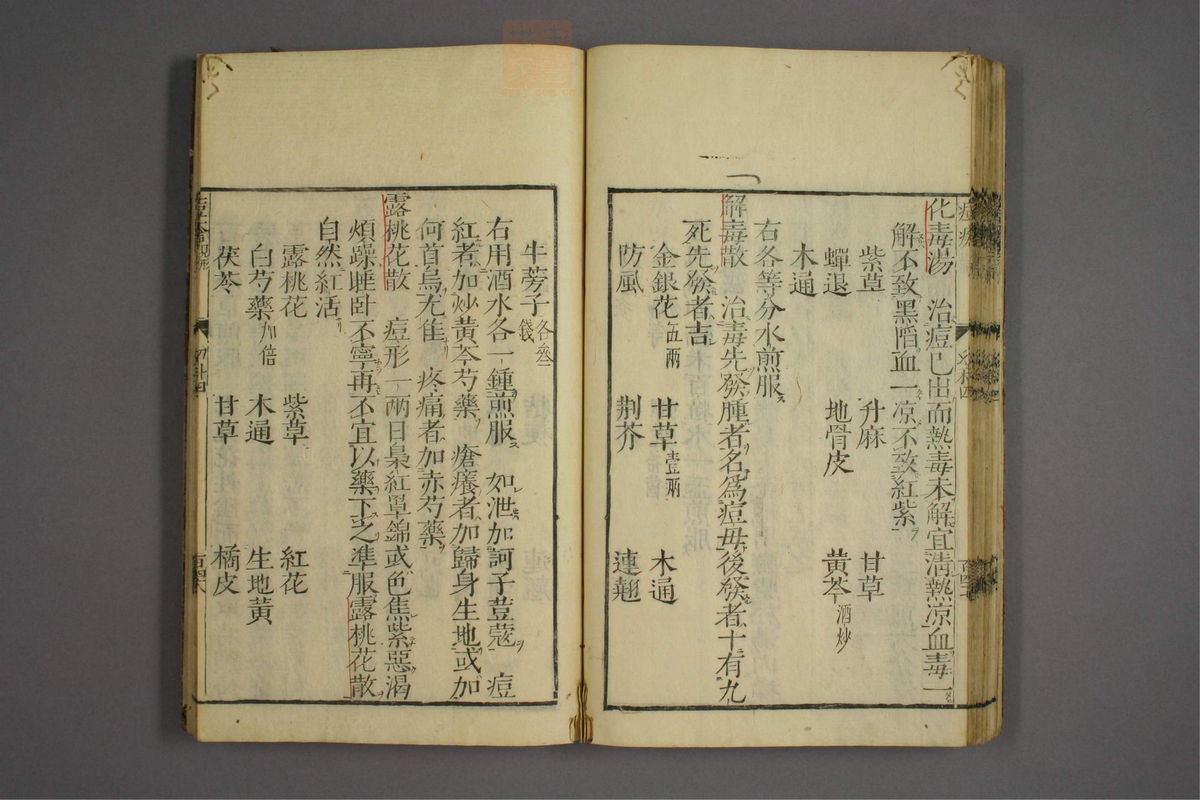 化毒湯 治痘已出而熱毒未解宜清熱凉血毒一
解不致黑陷血一凉不致紅紫
紫草 升麻 甘草
蟬退 地骨皮 黄芩酒炒
木通
右各等分水煎服
解毒散 治毒先發腫者名爲痘毋後發者十有九
死先發者吉
金銀花伍兩 甘草壹兩 木通
防風 荆芥 連翹
牛蒡子各叁錢
右用酒水各一鍾煎服 如泄加訶子荳蔻 痘
紅者加炒黄芩芍藥 瘡癢者加歸身生地或加
何首烏尤佳 疼痛者加赤芍藥
露桃花散 痘形一兩日梟紅罩錦或色焦紫惡渴
煩躁睡卧不寧再不宜以藥下之凖服露桃花散
自然紅活
露桃花 紫草 紅花
白芍藥加倍 木通 生地黄
茯苓 甘草 橘皮